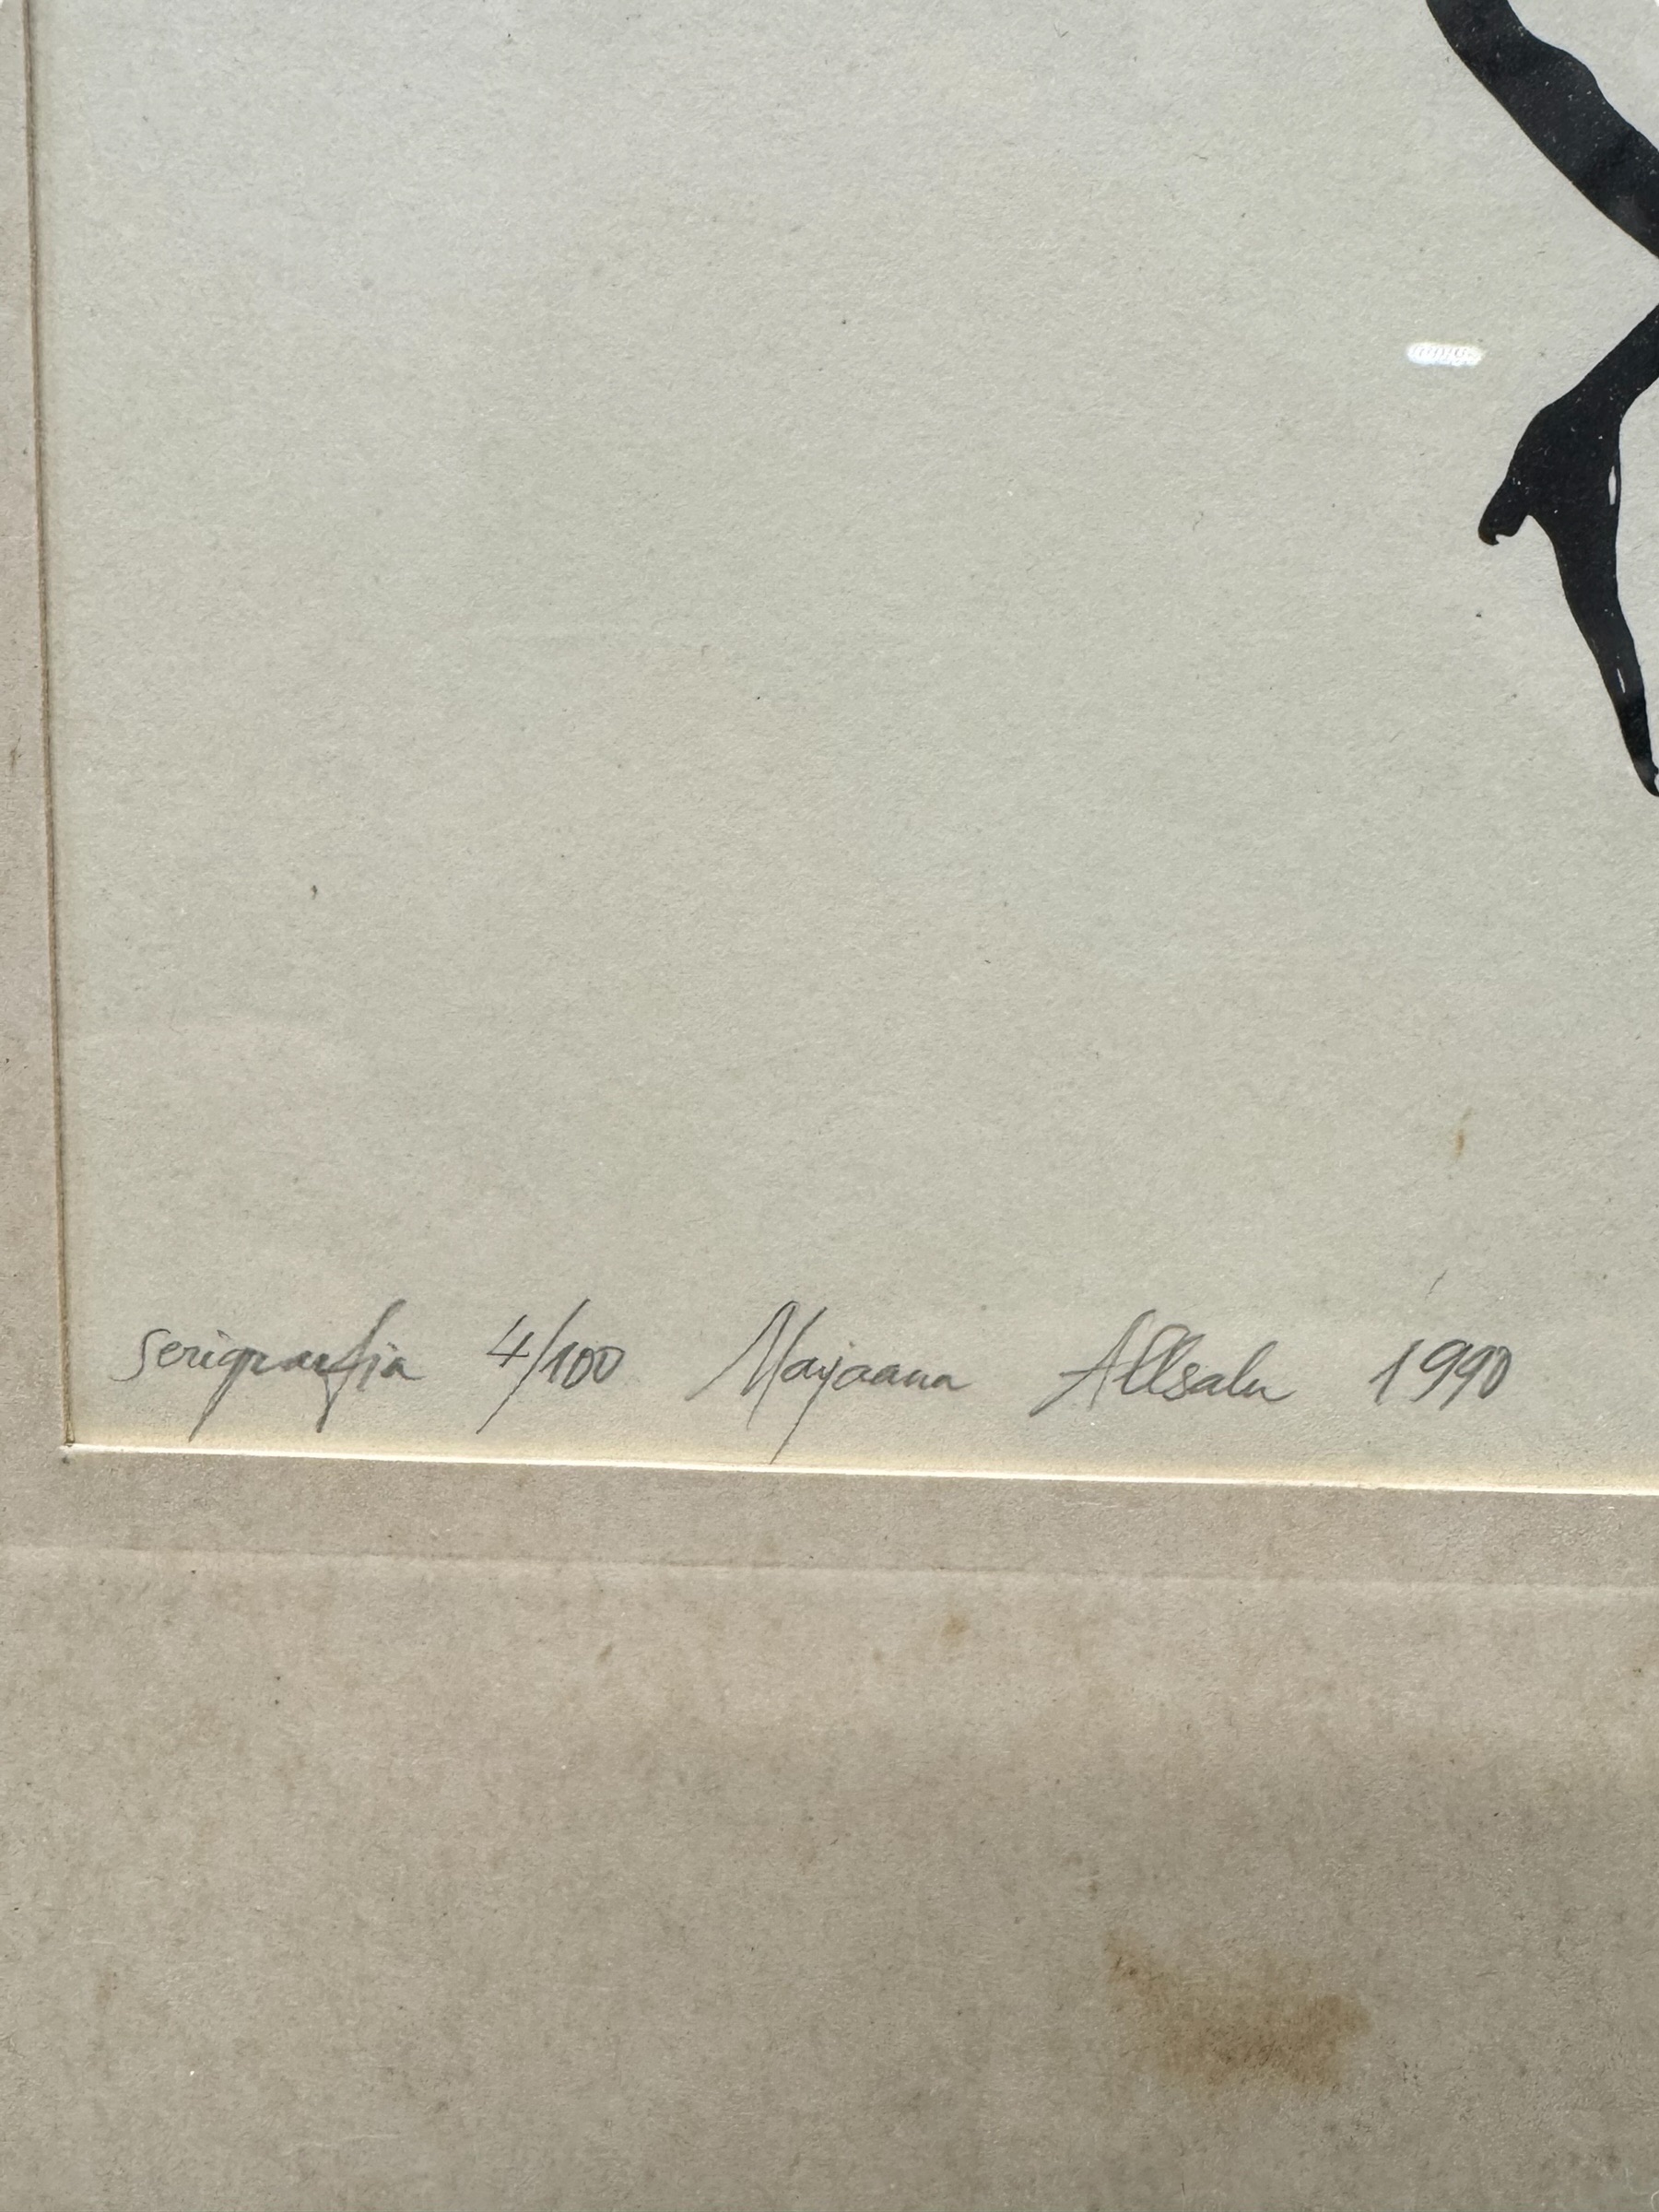 serigraafia 4/100 Marjaana Allsalu 1990